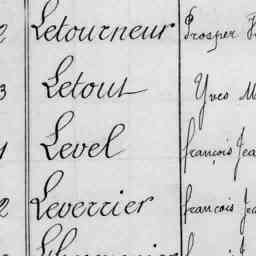 2 Letourneur Prosper
3 Letout Yves
Level françois Jea
2 Leverrier francois Jea